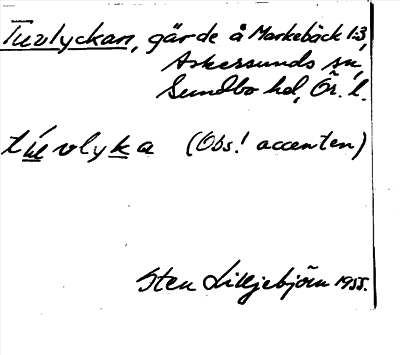 Tuvlyckan, gärde å Markebäck 1:3,
Askersunds sn,
Sundbo hd, Ör. l.
túvlyka (Obs! accenten)
Sten Lilljebjörn 1955.